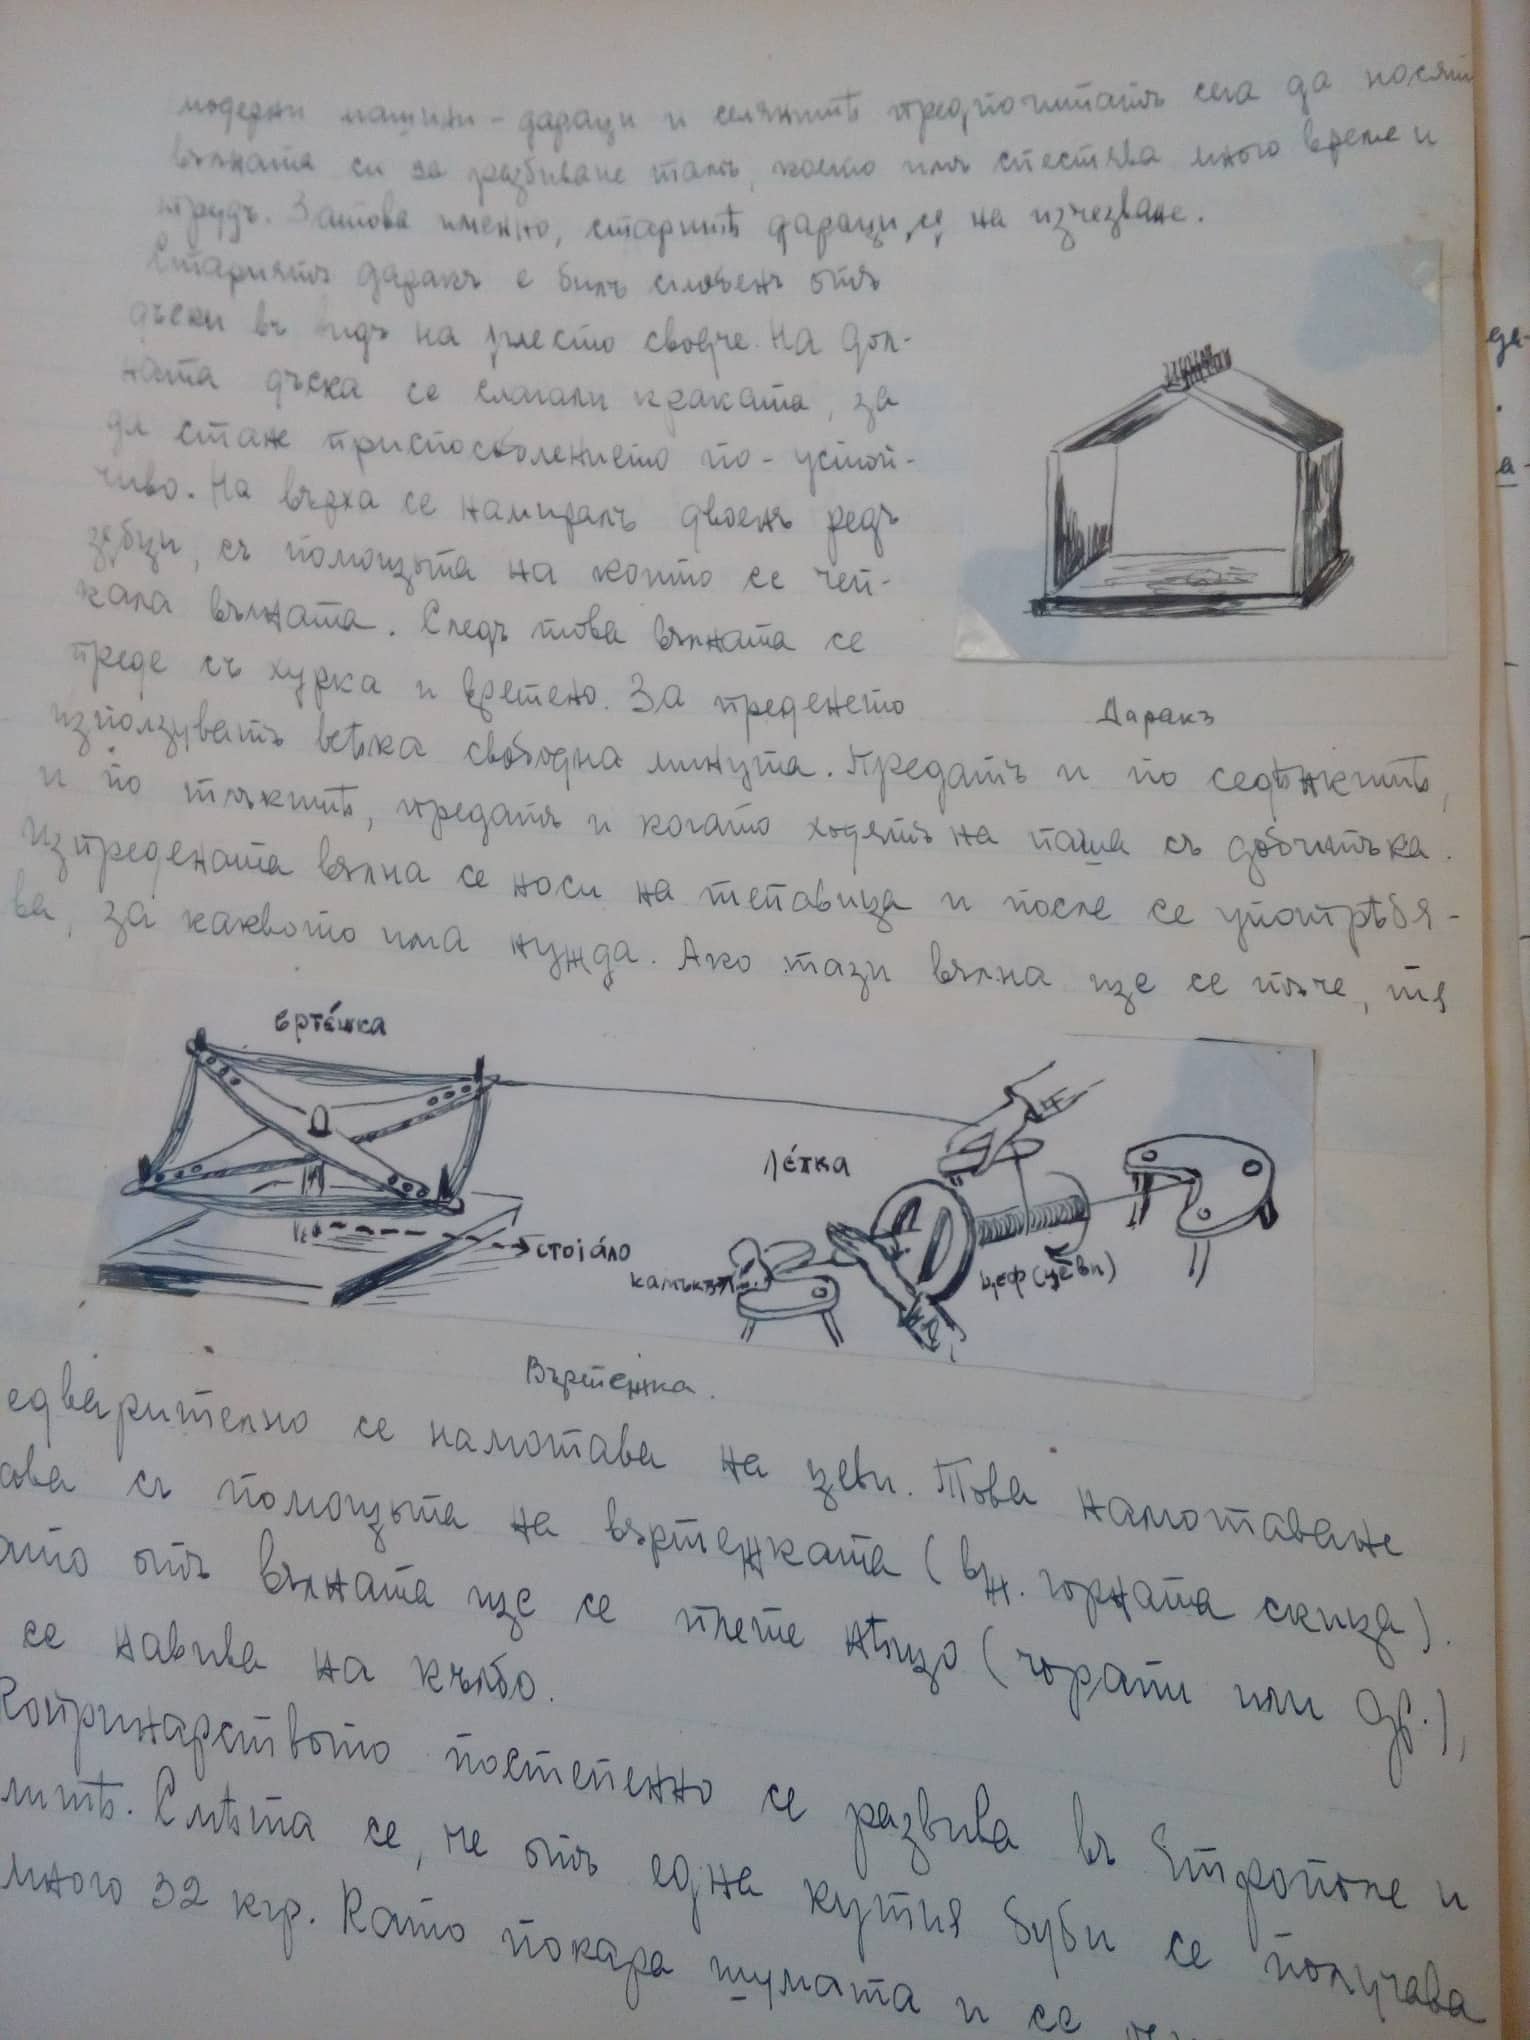 модерни машини - дараци и селянитѣ предпочитатъ сега да носятъ
вълната си за разбиване тамъ, което имъ спестява много време и
трудъ. Затова именно, старитѣ дараци сѫ на изчезване.
Стариятъ даракъ е билъ сглобенъ отъ
дъски въ видъ на ъглесто сводче. На дол-
ната дъска се слагали краката, за
да стане приспособлението по-устой-
чиво. На върха се намиралъ двоенъ редъ
зѫбци, съ помощьта на които се чеп-
кала вълната. Следъ това вълната се
преде съ хурка и вретено. За преденето
Даракъ
използуватъ всѣка свободна минута. Предатъ и по седѣнкитѣ,
и по тлъкитѣ, предатъ и когато ходятъ на паша съ добитъка.
Изпредената вълна се носи на тепавица и после се употрѣбя-
ва, за каквото има нужда. Ако тази вълна ще се тъче, тя
вртéшка
лéтка
стоiáло
камъкъ
цеф (цéви)
Въртешка.
едварително се намотава на цеви. Това намотаване
ава съ помощьта на въртешката (вж. горната скица).
ато отъ вълната ще се плете нѣщо (чорапи или др.),
се навива на кълбо.
Копринарството постепенно се развива въ Етрополе и
литѣ. Смѣта се, че отъ една кутия буби се получава
много 32 кгр. Като покара шумата и се